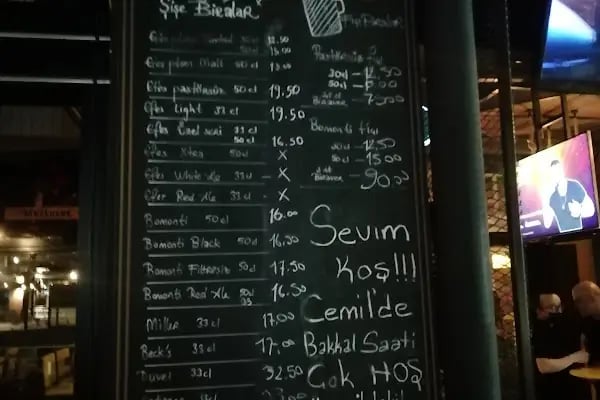 Şişe Biralar
Efes pilsen Malt 50cl
Efes pastörize 50cl 19.50
Efes Light 33cl 19.50
Efes Özel seri 33cl
50cl 16.50
Efes Xtra 50cl - X
Efes White Ale 33cl - X
Efes Red Ale 33cl - X
Bomonti 50cl 16.00
Bomonti Black 50cl 16.50
Bomonti Filtresiz 50cl 17.50
Bomonti Red Ale 50cl 16.50
33
Miller 33cl 17.00
Beck's 33cl 17.00
Duvel 33cl 32.50
Fıçı Biralar
30cl
50cl
Bomonti Fıçı
30cl - 12.50
50cl - 15.00
90.00
Sevim
Koş!!!
Cemil'de
Bakkal Saati
Çok HOŞ